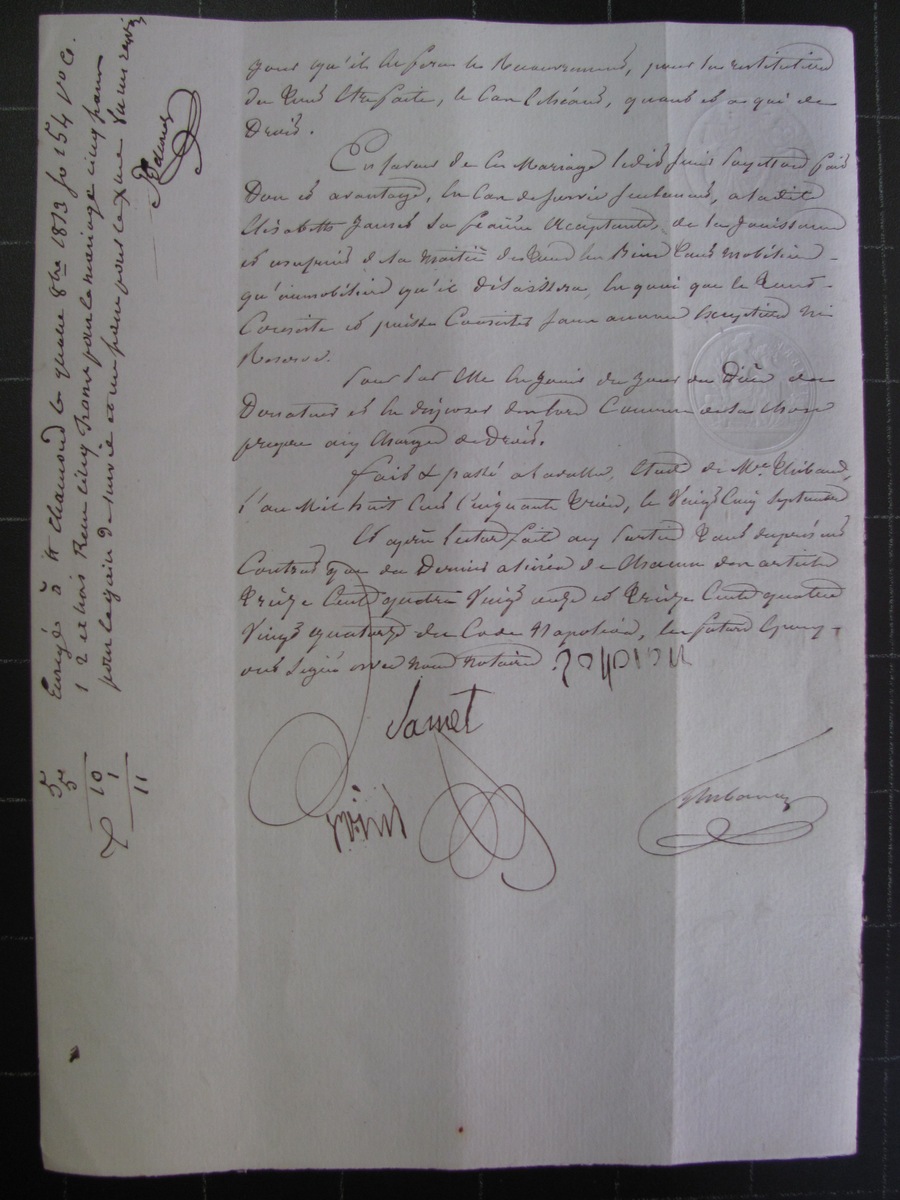 qu'il en fera le Recouvrement, pour la restitution
du tout être faite, le Cas échéant, quand et à qui de
Droit.
En faveur de ce Mariage ledit futur fait
Don et avantage, en Cas de survie seulement, à ladite
Elisabeth Jamet sa femme acceptante, de la Jouissance
et usufruit de la moitié de tous les Biens tant mobiliers
qu'immobiliers qu'il délaissera, en quoi que le tout
Consiste et puisse Consister sans aucune exception ni
Réserve.
Pour par elle en Jouir du Jour du Décès du
Donateur et en disposer Comme de sa Chose
propre aux Charges de Droit.
Fait & passé à Lavalla, étude de Me Thibaud,
l'an Mil huit Cent Cinquante trois, le Vingt Cinq Septembre
Et après lecture faite aux parties tant du présent
Contrat que du Dernier alinéa de Chacun des articles
treize Cent quatre Vingt onze et treize Cent quatre
Vingt quatorze du Code Napoléon, les futurs Epoux
ont signé avec nous notaire
Jamet
Thibaud
Enregé à St Chamond le quatre 8bre 1853 fo 154 Vo Ces
1 2 et trois Reçu Cinq francs pour le mariage cinq francs
pour le gain de survie et un franc pour le dixme
5
5
10
1
11